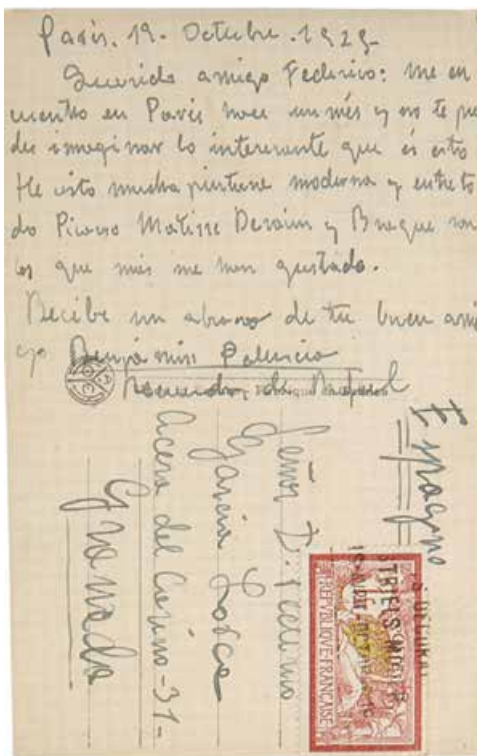 París. 19. Octubre. 1925-
Querido amigo Federico: me en
cuentro en París hace un més y no te pue
des imaginar lo interesante que és esto
He visto mucha pintura moderna y entre to
do Picaso Matisse Derain y Braque son
los que más me han gustado.
Recibe un abrazo de tu buen ami
go Benjamín Palencia
Recuerdos de
Espagne
Señor D. Federico
García Lorca
Acera del Casino-31-
Granada
REPUBLIQUE FRANÇAISE